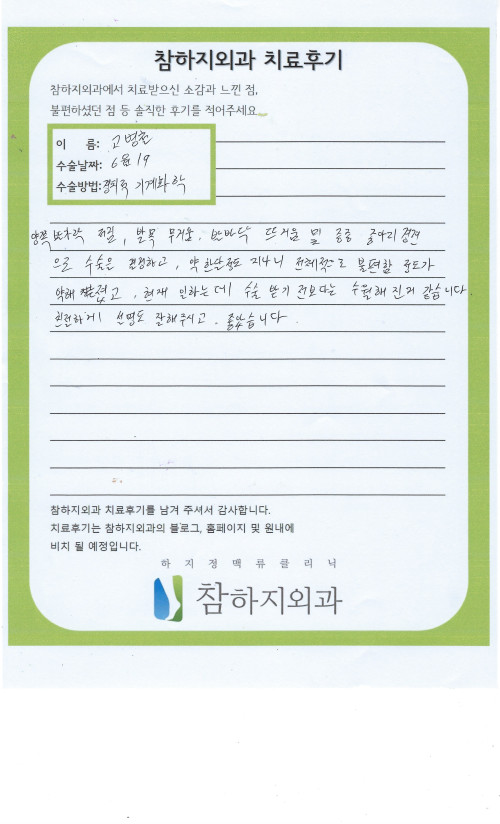 참하지외과 치료후기
참하지외과에서 치료받으신 소감과 느낀 점,
불편하셨던 점 등 솔직한 후기를 적어주세요
이 름: 고병훈
수술날짜: 6월 19
수술방법:경피적 기계화학
양쪽 발가락 저림, 발목 무거움, 발바닥 뜨거움 및 종종 종아리 경련
으로 수술은 결정하고, 약 한달정도 지나니 전체적으로 불편함 정도가
약해 졌고, 현재 일하는데 수술 받기 전보다는 수월해 진거 같습니다.
친절하게 설명도 잘해주시고, 좋았습니다.
참하지외과 치료후기를 남겨 주셔서 감사합니다.
치료후기는 참하지외과의 블로그, 홈페이지 및 원내에
비치 될 예정입니다.
하지정맥류클리닉
참하지외과